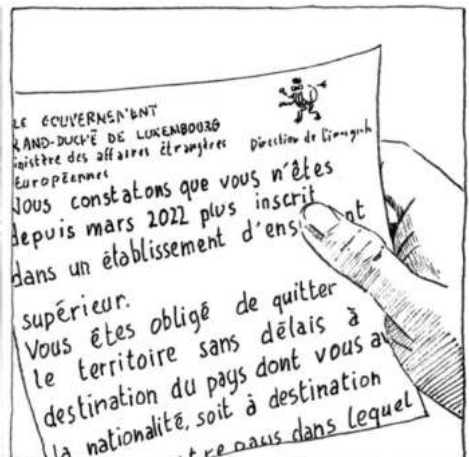 LE GOUVERNEMENT
RAND-DUCHÉ DE LUXEMBOURG
inistère des affaires étrangères
Européennes
Direction de l'immigch
Nous constatons que vous n'êtes
depuis mars 2022 plus inscrit
dans un établissement d'ens nt
supérieur.
Vous êtes obligé de quitter
le territoire sans délais à
destination du pays dont vous av
la nationalité, soit à destination
tre pays dans lequel